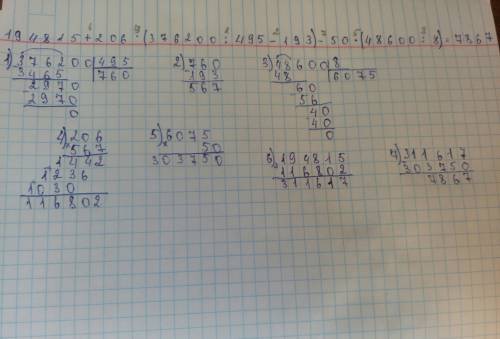 194815+206·(376200:495-193)-50·(48600:8)=7867
1) 376200 495 2) 760 3) 48600 8
3465 760 193 48 6075
2970 567 60
2970 56
0 40
40
0
4) 206 5) 6075
567 50 6) 194815 7) 311617
1442 303750 116802 303750
1236 311617 7867
1030
116802